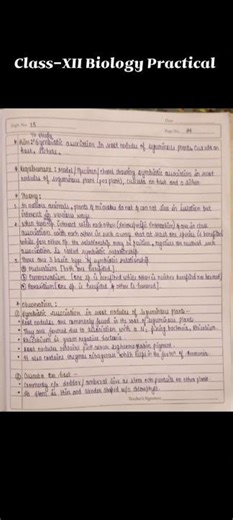 Class-XII Biology Practical
Page No.
To study
Aim: Symbiotic association in root nodules of leguminous plants, Cuscuta on host, lichens.
Requirements: model / specimen / chart showing symbiotic association in root
nodules of leguminous plant (pea plant), cuscuta on host and a lichen
Theory:
In nature animals, plants & microbes do not & can not live in isolation but
interact in various ways
When species interact with each other
association with each other in such a way that at least one species is benefited
while for other the relationship may be positive, negative or neutral such
association is called symbiotic relationship
There are 3 basic type of symbiotic relationship
mutualism (both are benefited)
Commensalism (one sp. is benefited while other is neither benefited nor harmed)
Parasitism (one sp. is benefited & other is harmed)
Observation:
① Symbiotic association in root nodules of leguminous plants -
Root nodules are commonly found in the roots of leguminous plants
They are formed due to association with a N₂ fixing bacteria, rhizobium
Rhizobium is gram negative bacteria
Root nodules contains pink colour leghaemoglobin pigment.
It also contains enzyme nitrogenase which helps in the of Ammonia.
② Cuscuta on host -
Commonly k/a dodder / amarbel live as stem ecto parasite on other plant
Its stem is thin and slender shaped w/o chlorophyll.
Teacher's Signature